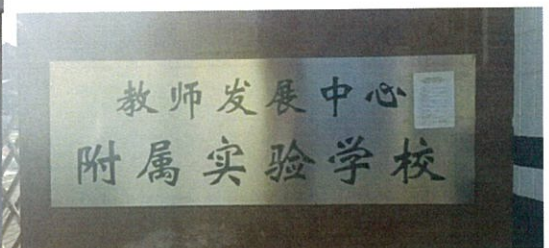 教师发展中心
附属实验学校